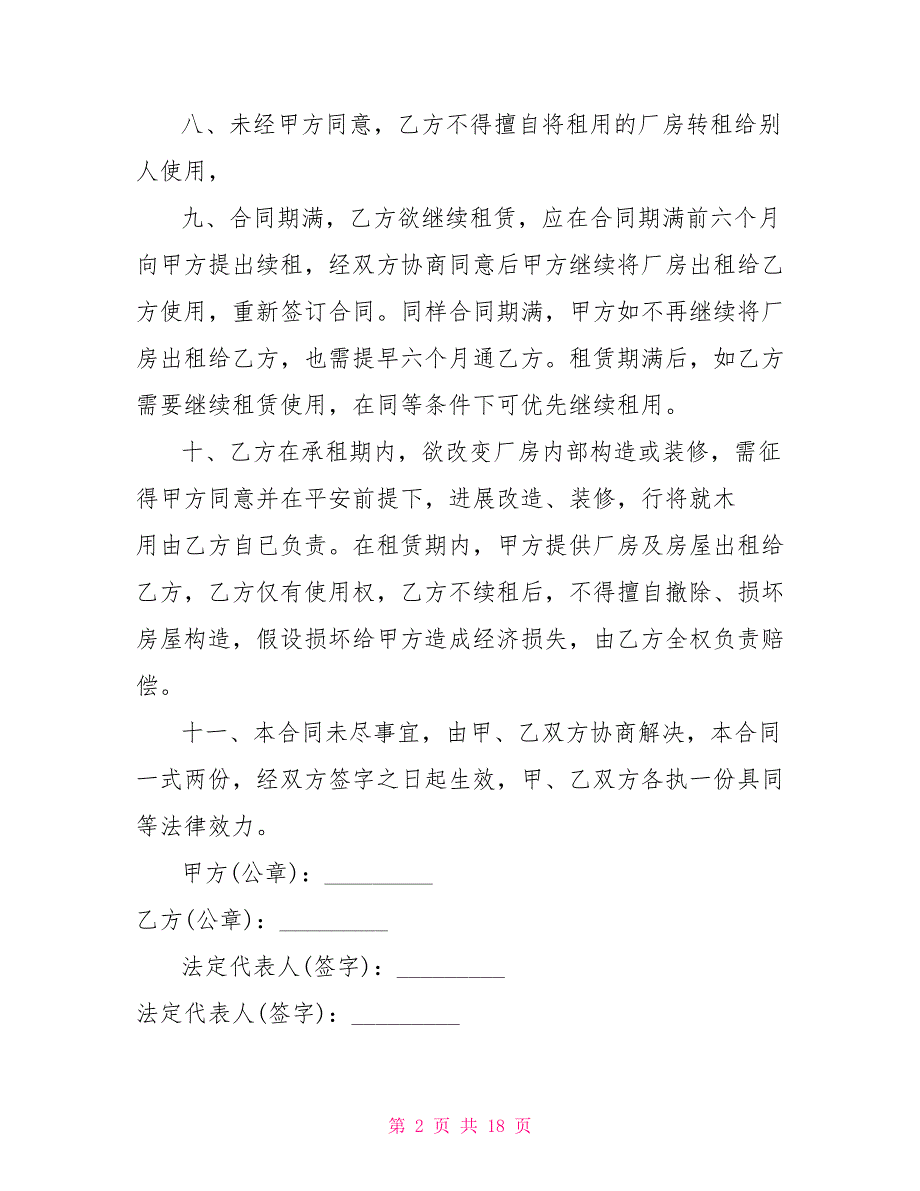 八、未经甲方同意，乙方不得擅自将租用的厂房转租给别
人使用，
九、合同期满，乙方欲继续租赁，应在合同期满前六个月
向甲方提出续租，经双方协商同意后甲方继续将厂房出租给乙
方使用，重新签订合同。同样合同期满，甲方如不再继续将厂
房出租给乙方，也需提早六个月通乙方。租赁期满后，如乙方
需要继续租赁使用，在同等条件下可优先继续租用。
十、乙方在承租期内，欲改变厂房内部构造或装修，需征
得甲方同意并在平安前提下，进展改造、装修，行将就木
用由乙方自己负责。在租赁期内，甲方提供厂房及房屋出租给
乙方，乙方仅有使用权，乙方不续租后，不得擅自撤除、损坏
房屋构造，假设损坏给甲方造成经济损失，由乙方全权负责赔
偿。
十一、本合同未尽事宜，由甲、乙双方协商解决，本合同
一式两份，经双方签字之日起生效，甲、乙双方各执一份具同
等法律效力。
甲方(公章)：_________
乙方(公章)：_________
法定代表人(签字)：_________
法定代表人(签字)：_________
第 2 页 共 18 页